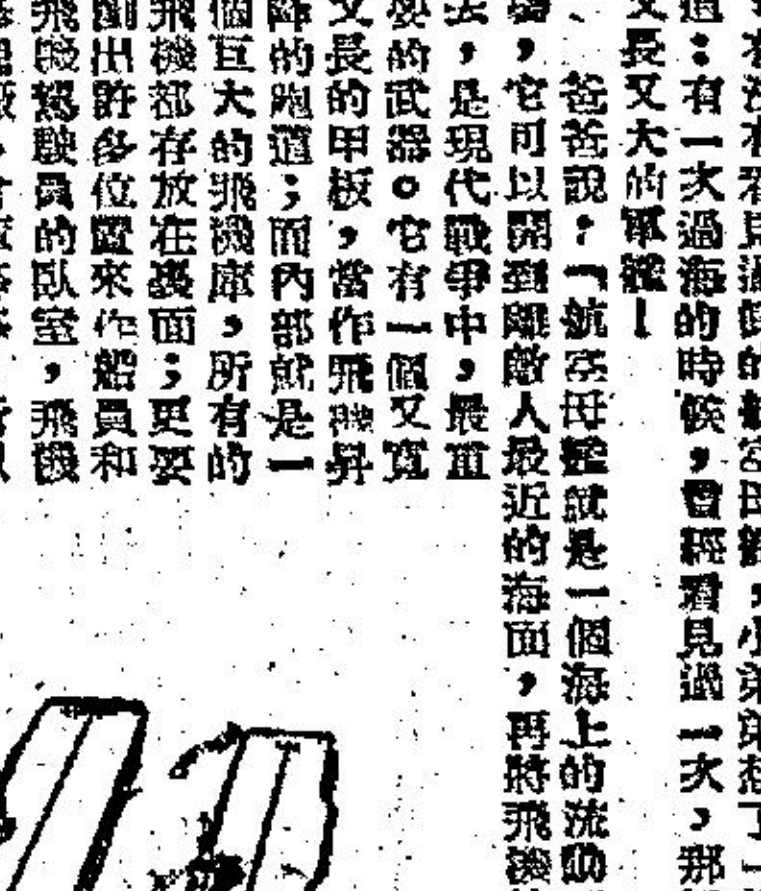 有沒有看見過的航空母艦，小弟弟想了一
道：有一次過海的時候，曾經看見過一次，那
又長又大的軍艦！
爸爸說：「航空母艦就是一個海上的流動
場，它可以開到離敵人最近的海面，再將飛機
去，是現代戰爭中，最重
要的武器。它有一個又寬
又長的甲板，當作飛機昇
降的跑道；而內部就是一
個巨大的飛機庫，所有的
飛機都存放在裏面；更要
劃出許多位置來作船員和
飛機駕駛員的臥室，飛機